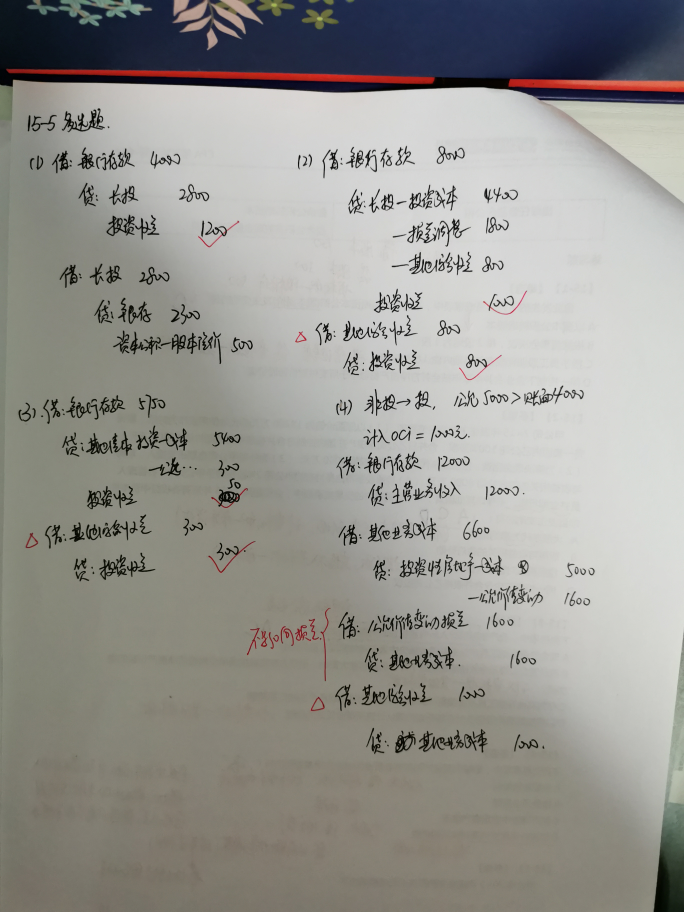 15-5 多选题.
(1) 借: 银行存款 4000
贷: 长投 2800
投资收益 1200
借: 长投 2800
贷: 银存 2300
资本公积—股本溢价 500
(2) 借: 银行存款 8000
贷: 长投—投资成本 4400
—损益调整 1800
—其他综合收益 800
投资收益 1000
△ 借: 其他综合收益 800
贷: 投资收益 800
(3) 借: 银行存款 5750
贷: 其他债权投资—成本 5400
—公允… 300
投资收益 50
△ 借: 其他综合收益 300
贷: 投资收益 300.
(4) 非投→投, 公允5000>账面4000
计入OCI=1000元.
借: 银行存款 12000
贷: 主营业务收入 12000.
借: 其他业务成本 6600
贷: 投资性房地产—成本 5000
—公允价值变动 1600
不影响损益
借: 公允价值变动损益 1600
贷: 其他业务成本. 1600
△ 借: 其他综合收益 1000
贷: 其他业务成本 1000.